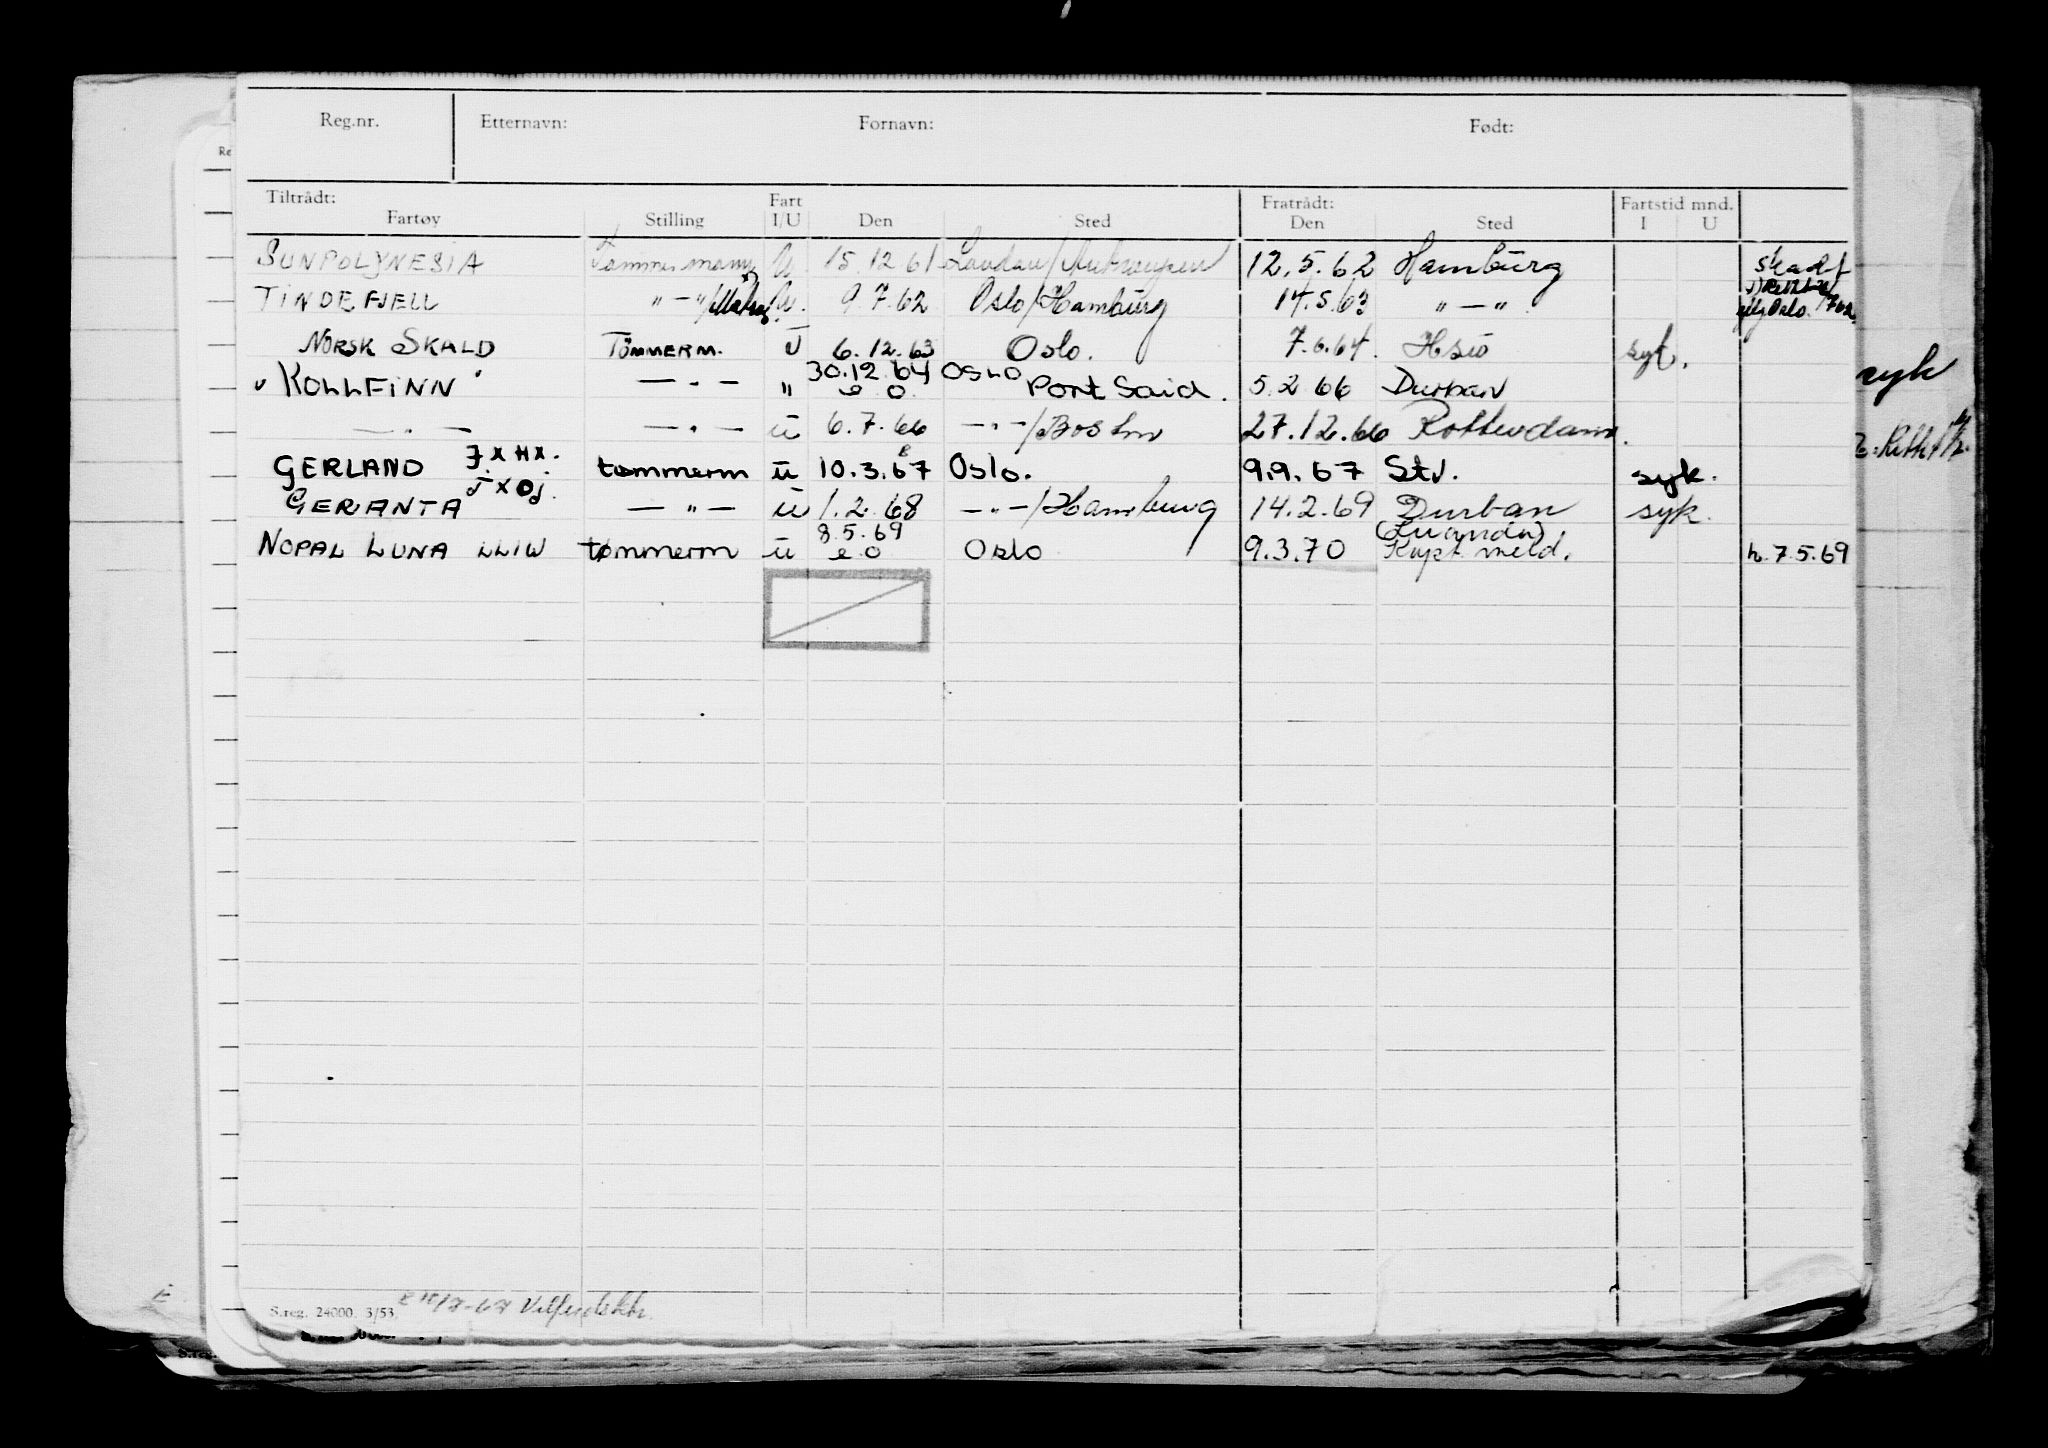 Reg.nr. Etternavn: Fornavn: Født:
Tiltrådt: Fart Fratrådt: Fartstid mnd.
Fartøy Stilling I/U Den Sted Den Sted I U
SUNPOLYNESIA Tømmermann U. 15.12.61 London/Antwerpen 12.5.62 Hamburg
TINDEFJELL " — " /Matros U. 9.7.62 Oslo/Hamburg 14.5.63 " — "
Oslo
NORSK SKALD TÖMMERM. U 6.12.63 Oslo. 7.6.64. syk.
30.12.64 OSLO
" KOLLFINN " — " — " e o Port Said. 5.2 66 Durban
syk
— " — — " — u 6.7.66 — " — /Boston 27.12.66 Rotterdam.
GERLAND J.X.H.X. tømmerm u 10.3.67 Oslo. 9.9.67 Stv. syk.
GERANTA J X O J. — " — u 1.2.68 — " — /Hamburg 14.2.69 Durban syk.
8.5.69 (Luanda)
NOPAL LUNA LLIW tømmerm u e o Oslo 9.3.70 Kapt. meld. h. 7.5.69
S.reg. 24000 3/53